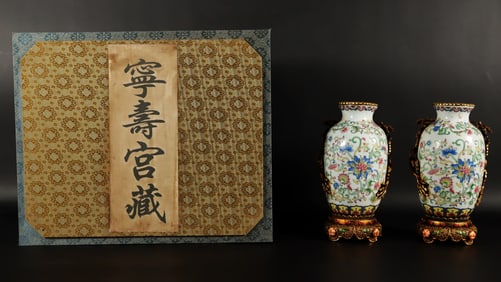 寧壽宮藏